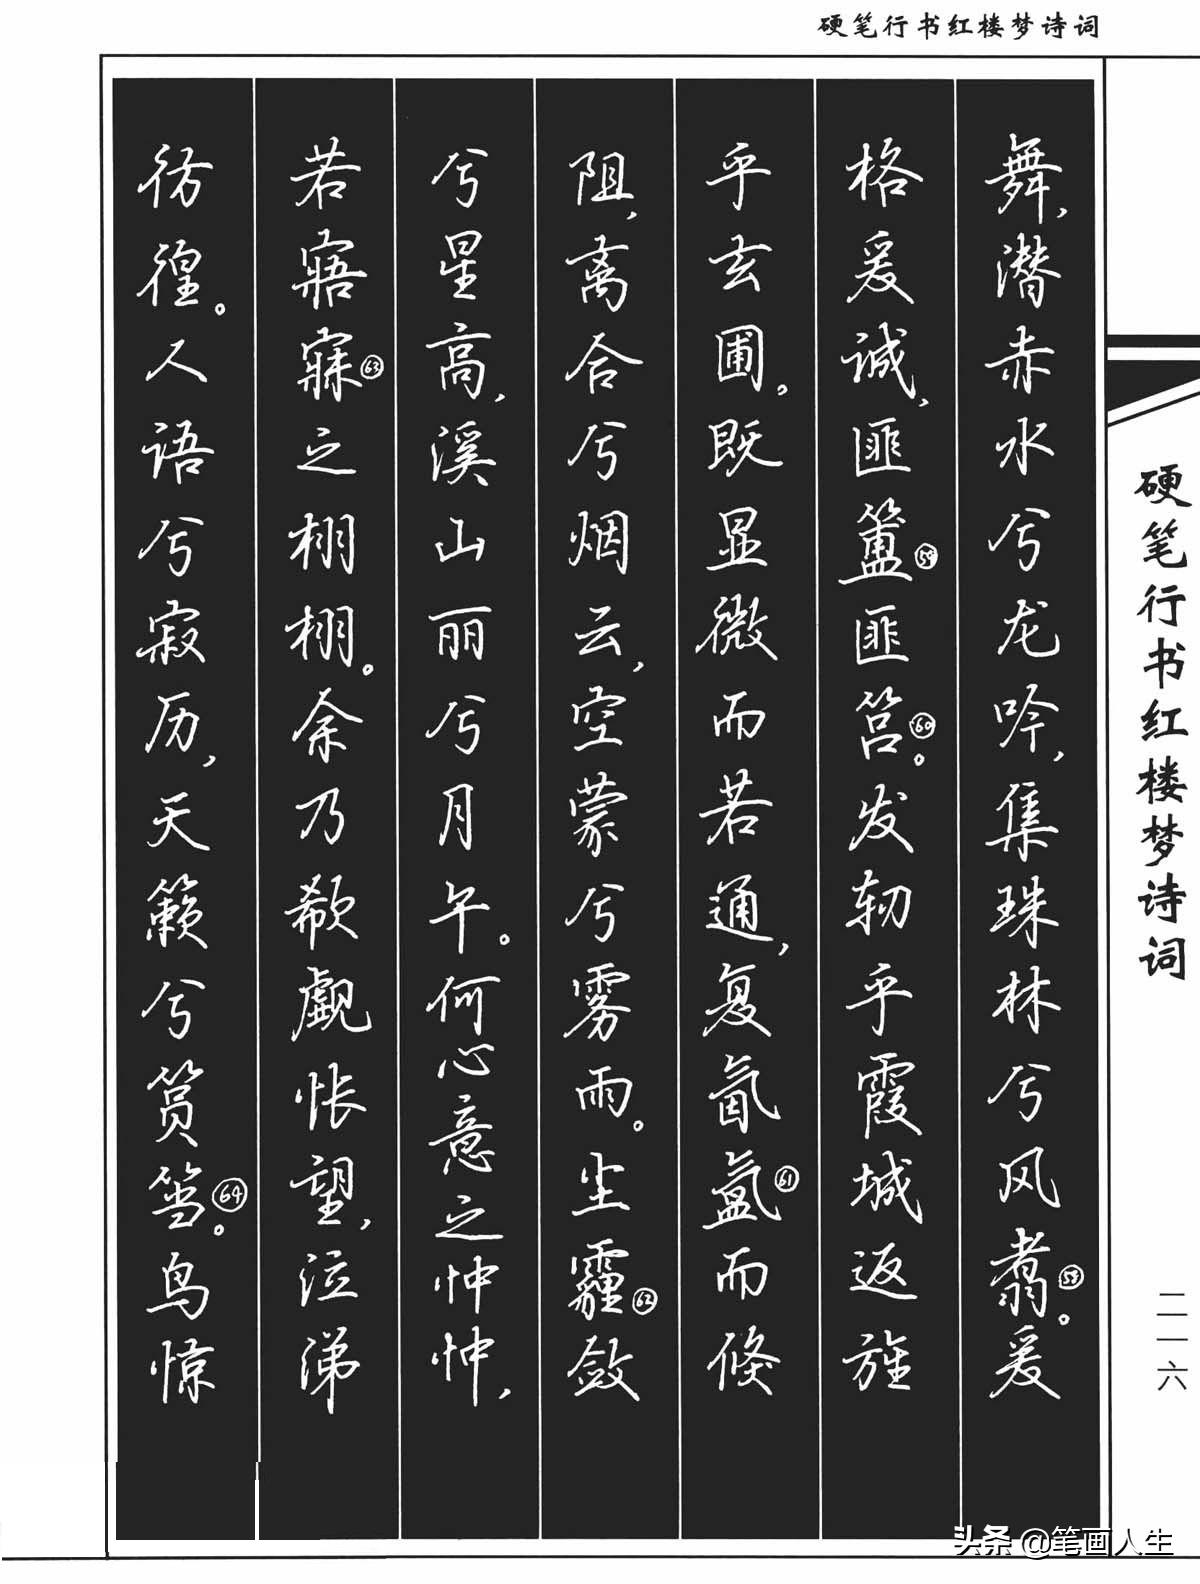 硬笔行书红楼梦诗词
舞，潜赤水兮龙吟，集珠林兮凤翥㊽。爰
格爰诚，匪簠㊾匪筥㊿。发轫乎霞城，返旌
乎玄圃。既显微而若通，复氤氲61而倏
阻，离合兮烟云，空蒙兮雾雨。尘霾62敛
兮星高，溪山丽兮月午。何心意之忡忡，
若寤寐63之栩栩。余乃欷歔怅望，泣涕
彷徨。人语兮寂历，天籁兮筼筜64。鸟惊
硬笔行书红楼梦诗词
二一六
头条 @笔画人生